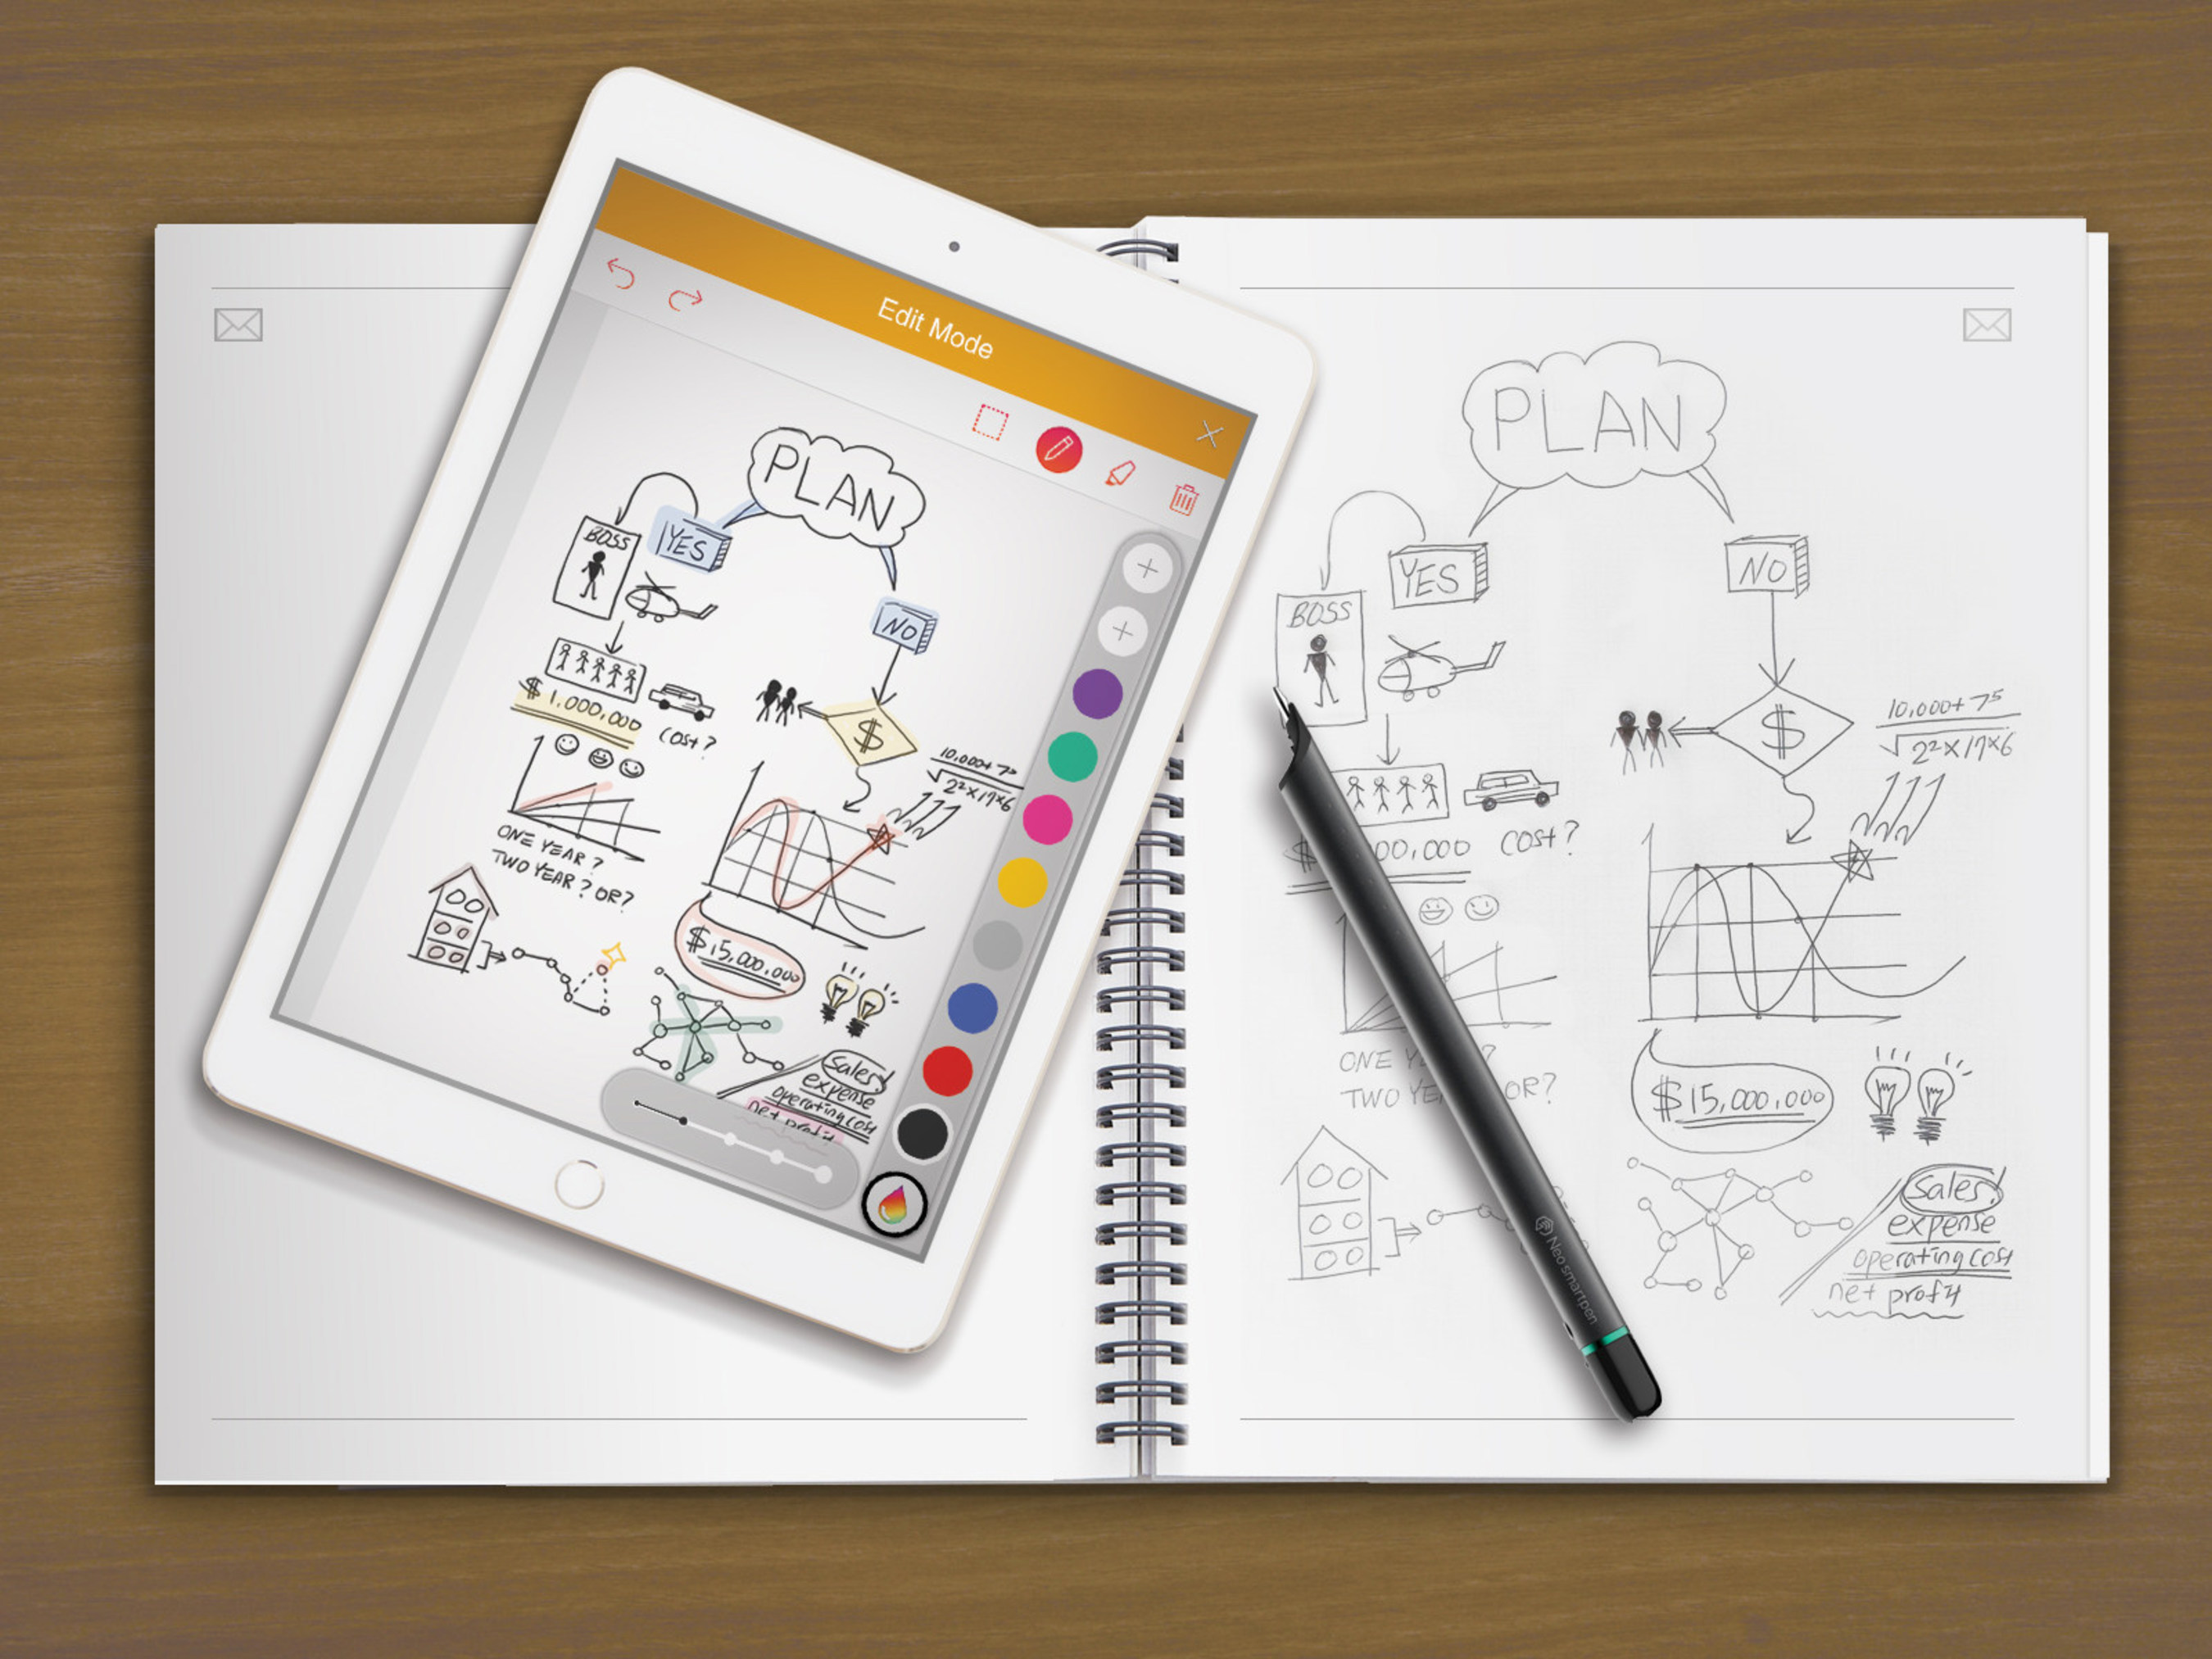 Edit Mode
PLAN
BOSS
YES
NO
$ 1,000,000
COST?
$
10,000+7⁵
√2²×17×6
ONE YEAR?
TWO YEAR? OR?
$15,000,000
Sales!
expense
operating cost
net profit
PLAN
YES
NO
BOSS
$
10,000+7⁵
√2²×17×6
$ 00,000 COST?
ONE Y ?
TWO YE OR?
$15,000,000
Sales!
expense
operating cost
net profit
Neo smartpen